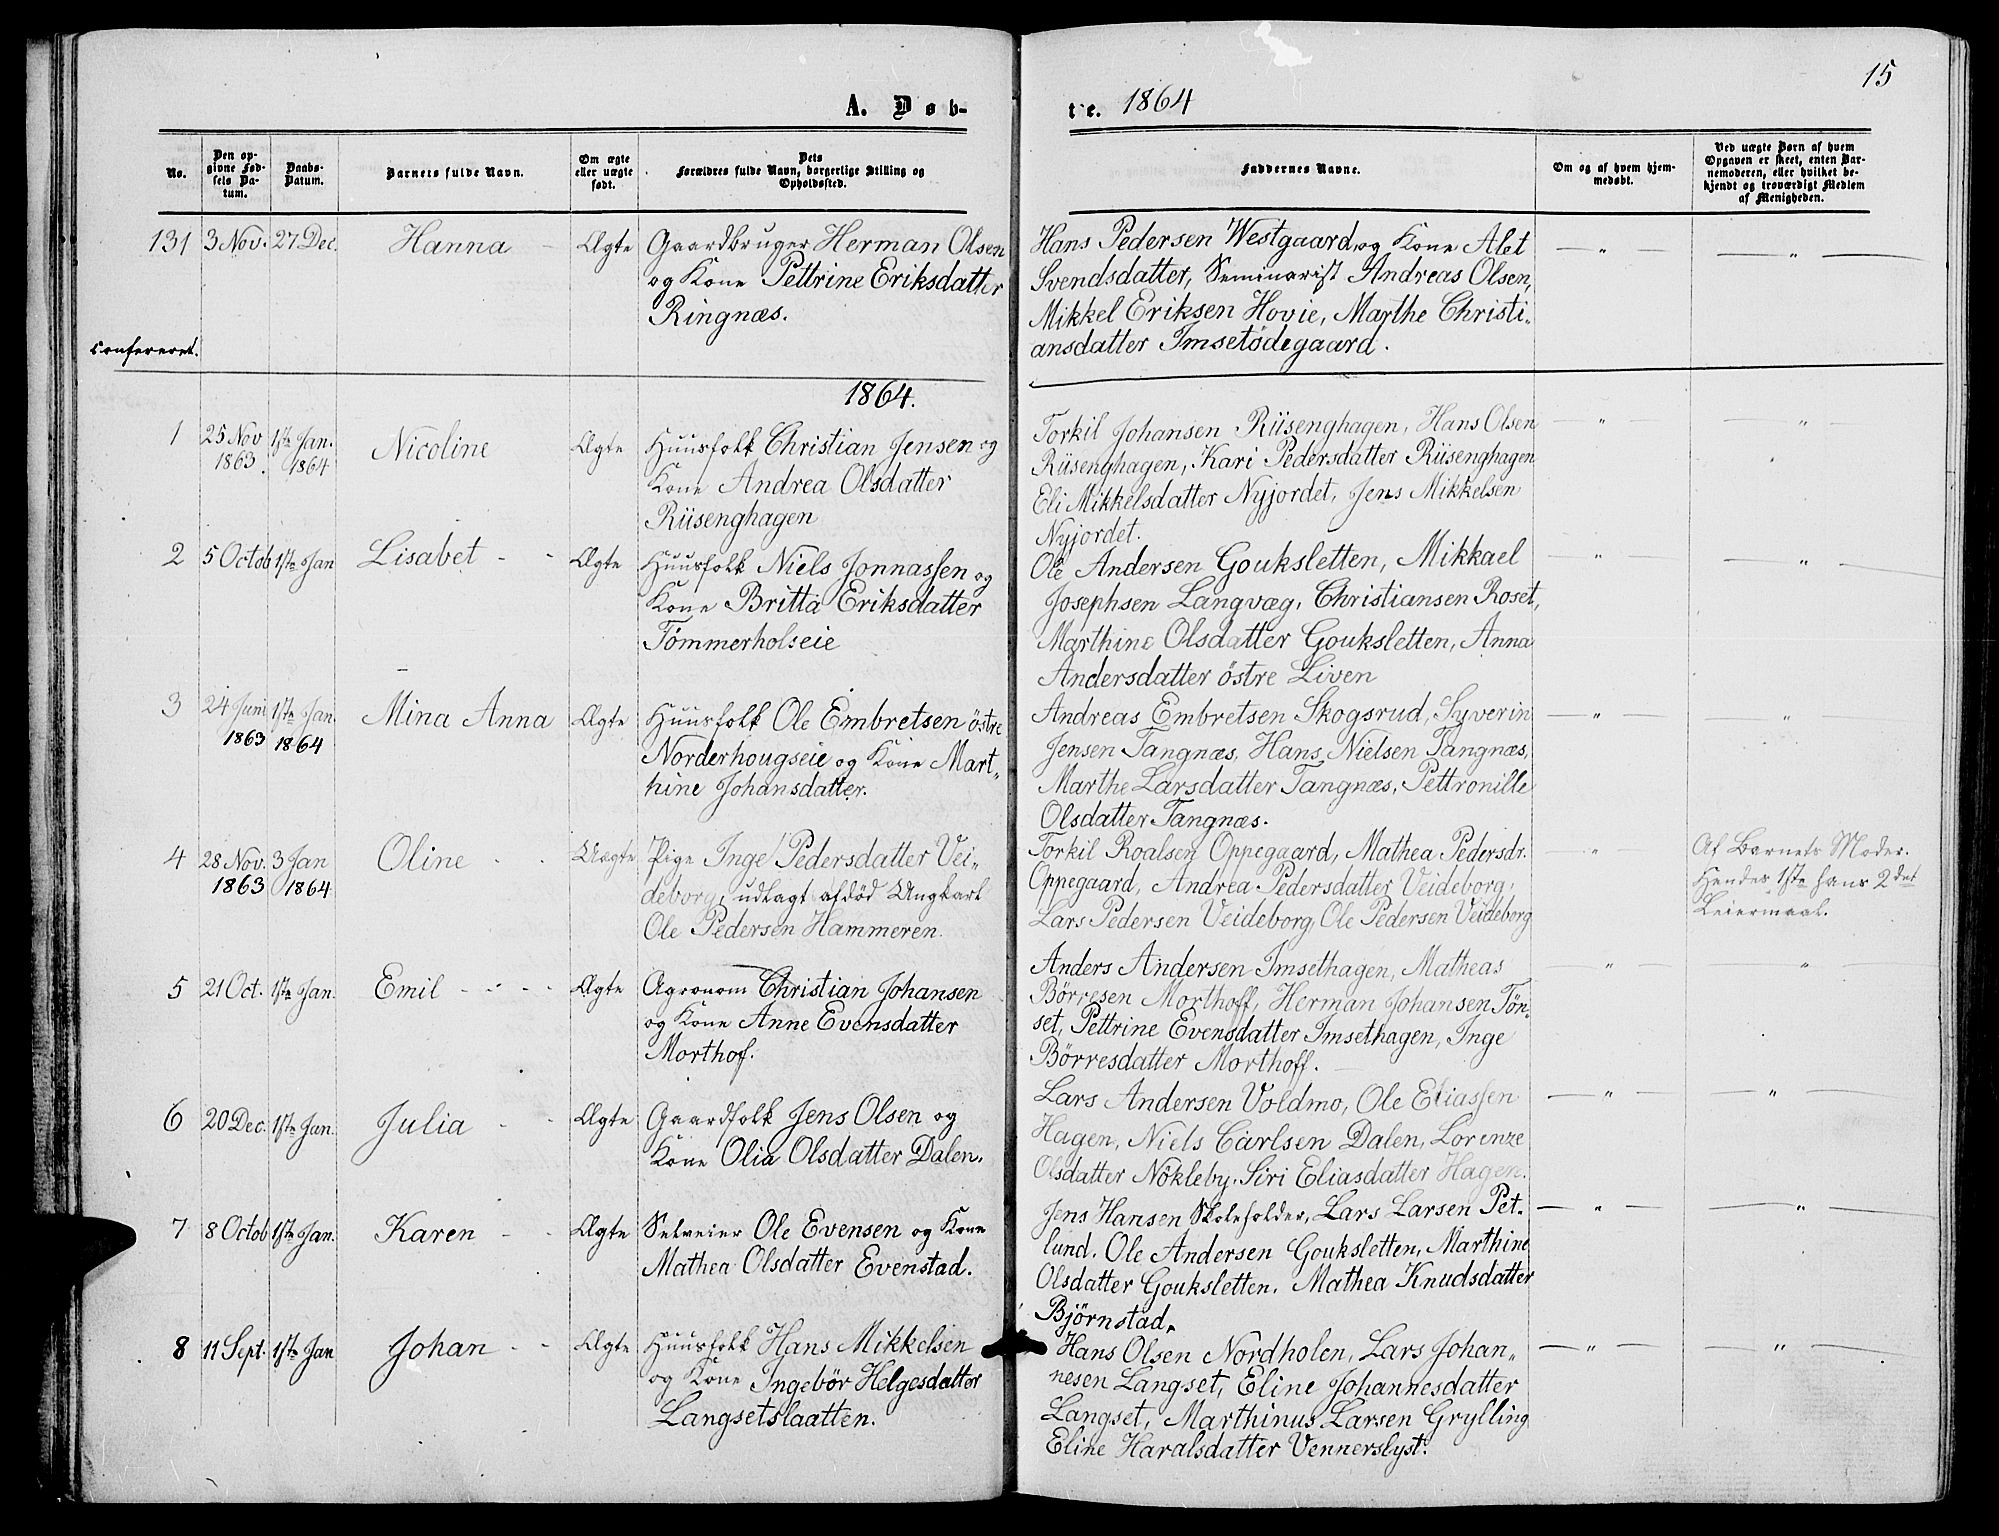 15
A. Døb-
te. 1864
No.
Den op-
givne Fød-
sels Da-
tum.
Daabs-
Datum.
Barnets fulde Navn.
Om ægte
eller uægte
født.
Dets
Forældres fulde Navn, borgerlige Stilling og
Opholdssted.
Faddernes Navne.
Om og af hvem hjem-
medøbt.
Ved uægte Børn af hvem
Opgaven er skeet, enten Bar-
nemoderen, eller hvilket be-
kjendt og troværdigt Medlem
af Menigheden.
131 3 Nov. 27 Dec. Hanna - Ægte
Gaardbruger Herman Olsen
og Kone Pettrine Eriksdatter
Ringnæs.
Hans Pedersen Westgaard, og Kone Alet
Svendsdatter, Seminarist Andreas Olsen,
Mikkel Eriksen Hovie, Marthe Christi-
ansdatter Imsetödegaard.
— " — — " —
Confereret.
1864.
1 25 Nov 1863. 1ste Jan. 1864 Nicoline Ægte
Huusfolk Christian Jensen og
Kone Andrea Olsdatter
Riisenghagen
Torkil Johansen Riisenghagen, Hans Olsen
Riisenghagen, Kari Pedersdatter Riisenghagen
Eli Mikkelsdatter Nyjordet, Jens Mikkelsen
Nyjordet.
— " — — " —
2 5 Octob 1ste Jan Lisabet - - Ægte
Huusfolk Niels Jonnassen og
Kone Britta Eriksdatter
Tömmerholseie
Ole Andersen Gouksletten, Mikkael
Josephsen Langvæg, Christiansen Roset,
Marthine Olsdatter Gouksletten, Anna
Andersdatter östre Liven
— " — — " —
3 24 Juni 1863 1ste Jan. 1864 Mina Anna Ægte
Huusfolk Ole Embretsen östre
Norderhougseie og Kone Mart-
hine Johansdatter.
Andreas Embretsen Skogsrud, Syverin
Jensen Tangnæs, Hans Nielsen Tangnæs,
Marthe Larsdatter Tangnæs, Pettronille
Olsdatter Tangnæs.
— " — "
4 28 Nov. 1863 3 Jan 1864 Oline - - Uægte
Pige Inge Pedersdatter Vei-
deborg, udlagt afdöd Ungkarl
Ole Pedersen Hammeren.
Torkil Roalsen Oppegaard, Mathea Pedersdr.
Oppegaard, Andrea Pedersdatter Veideborg,
Lars Pedersen Veideborg, Ole Pedersen Veideborg
— " —
Af Barnets Moder.
Hendes 1ste hans 2det
Leiermaal.
5 21 Oct. 1ste Jan. Emil - - - - Ægte
Agronom Christian Johansen
og Kone Anne Evensdatter
Morthof.
Anders Andersen Imsethagen, Matheas
Börresen Morthoff, Herman Johansen Tön-
set, Pettrine Evensdatter Imsethagen, Inge
Börresdatter Morthoff.
— " — "
6 20 Dec. 1ste Jan. Julia - - Ægte
Gaardfolk Jens Olsen og
Kone Olia Olsdatter Dalen.
Lars Andersen Voldmo, Ole Eliassen
Hagen, Niels Carlsen Dalen, Lorenze
Olsdatter Nökleby, Siri Eliasdatter Hagen.
— " — — " —
7 8 Octob 1ste Jan. Karen - - Ægte
Selveier Ole Evensen og Kone
Mathea Olsdatter Evenstad.
Jens Hansen Skoleholder, Lars Larsen Pet-
lund. Ole Andersen Gouksletten, Marthine
Olsdatter Gouksletten. Mathea Knudsdatter
Björnstad.
— " — — " —
8 11 Sept. 1ste Jan Johan - - Ægte
Huusfolk Hans Mikkelsen
og Kone Ingebör Helgesdatter
Langsetslaatten.
Hans Olsen Nordholen, Lars Johan-
nesen Langset, Eline Johannesdatter
Langset, Marthinus Larsen Grylling
Eline Haralsdatter Vennerslyst.
— " — — " —